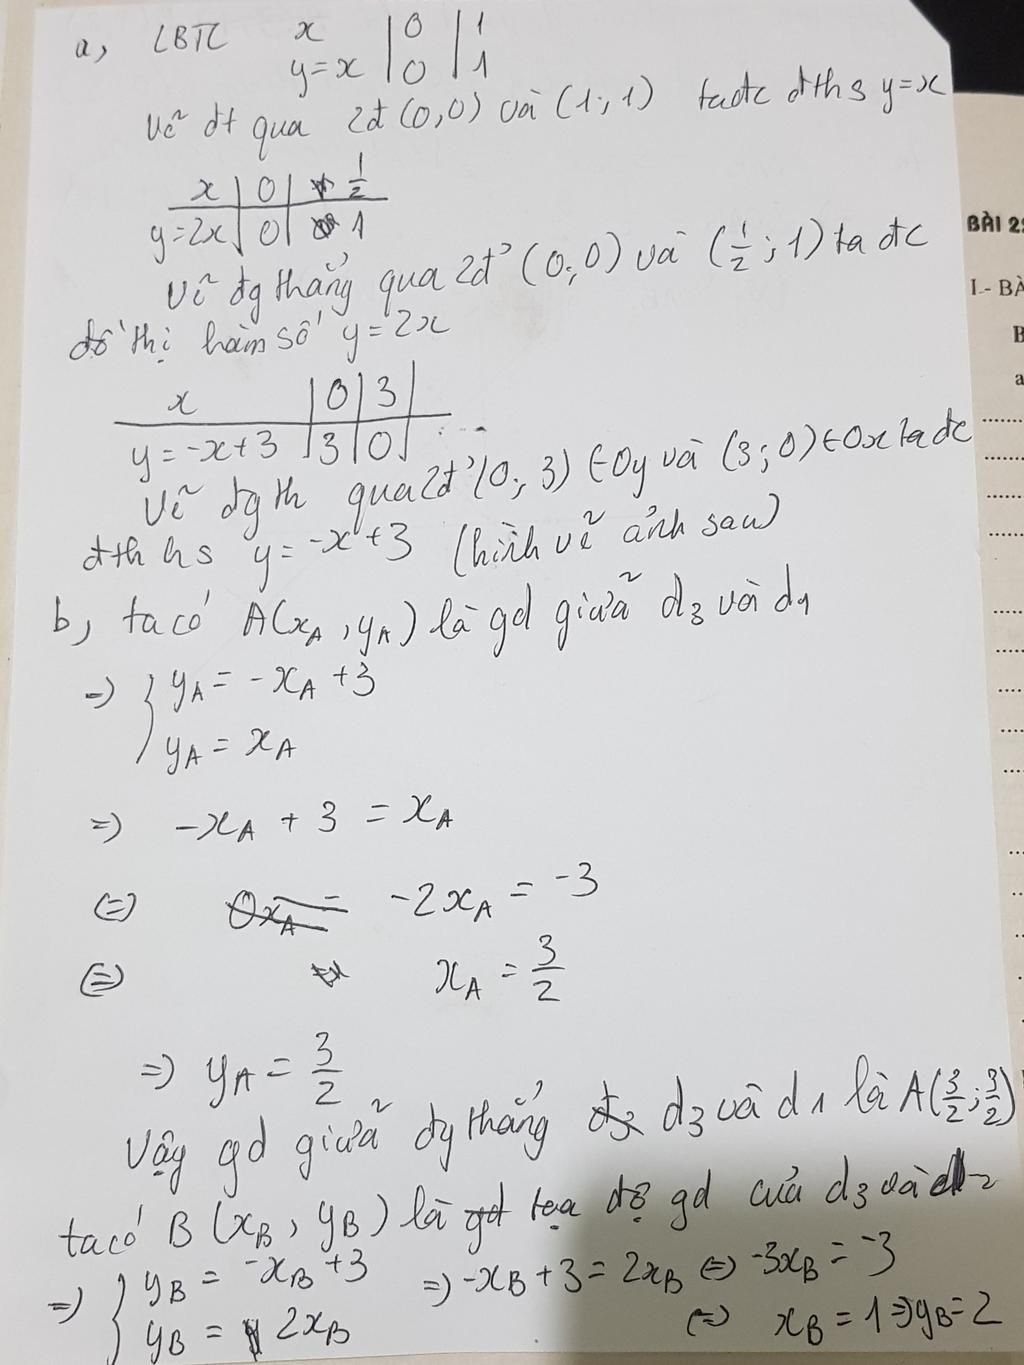 a, LBTC x | 0 | 1
y=x | 0 | 1
vẽ đt qua 2đ (0,0) và (1; 1) ta đc đths y=x
x | 0 | 1/2
y=2x | 0 | 1
Vẽ đg thẳng qua 2đ' (0;0) và (1/2; 1) ta đc
đồ thị hàm số y=2x
x | 0 | 3 |
y=-x+3 | 3 | 0 |
Vẽ đg th qua 2đ' (0; 3) ∈ Oy và (3; 0) ∈ Ox ta đc
đth hs y=-x+3 (hình vẽ ảnh sau)
b, ta có A(xA, yA) là gd giữa d3 và d1
=> { yA = -xA +3
yA = xA
=> -xA + 3 = xA
(=) -2xA = -3
(=) xA = 3/2
=> yA = 3/2
Vậy gd giữa đg thẳng d3 và d1 là A(3/2; 3/2)
ta có B (xB, yB) là tọa độ gd của d3 và d2
=> { yB = -xB +3 => -xB + 3 = 2xB (=) -3xB = -3
yB = 2xB (=) xB = 1 => yB = 2
BÀI 2
I.- BÀ
B
a